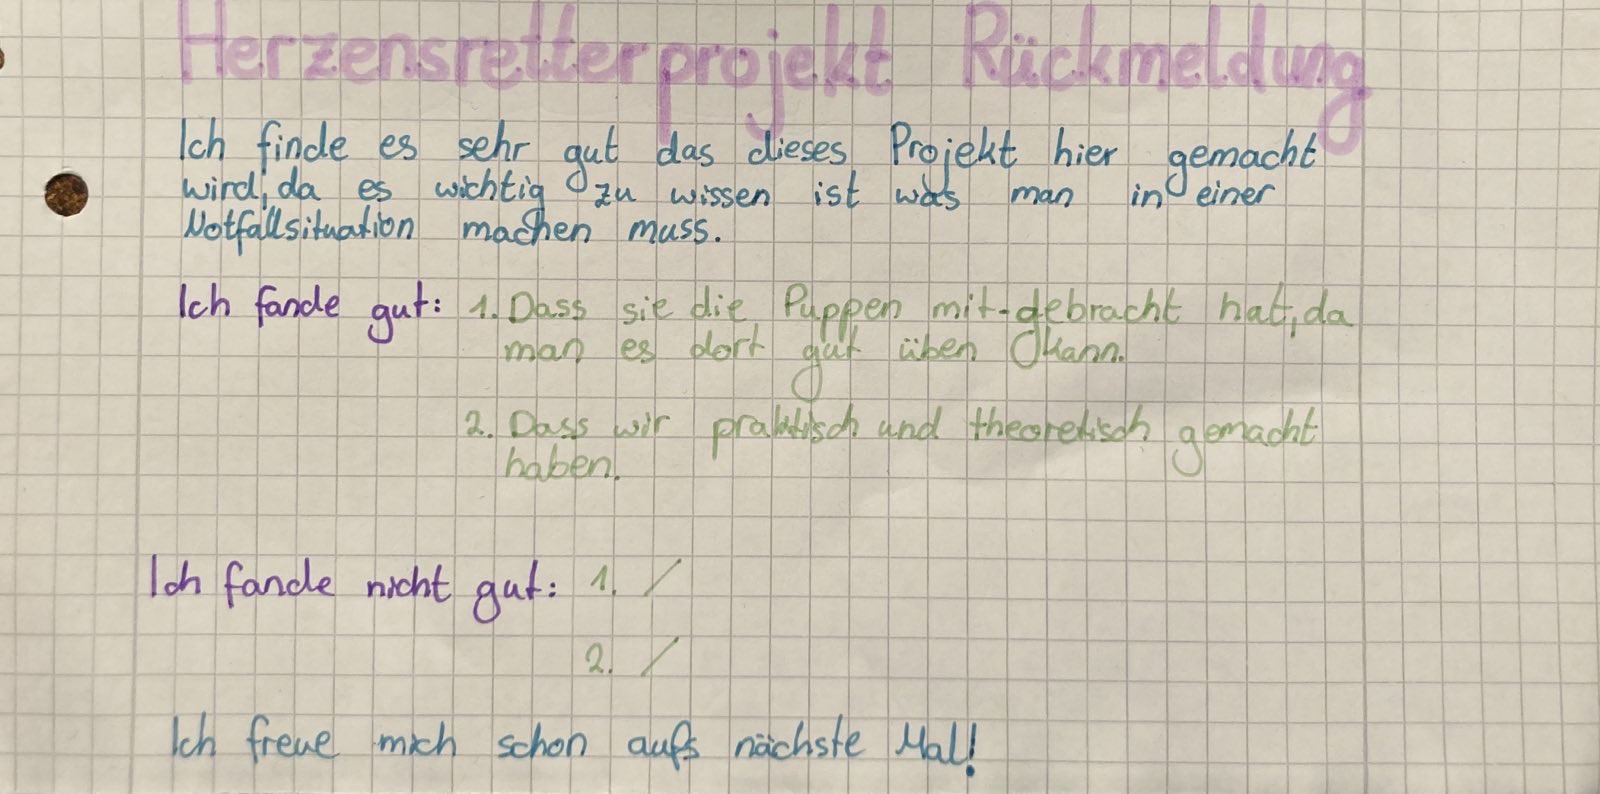 Herzensretterprojekt Rückmeldung
Ich finde es sehr gut das dieses Projekt hier gemacht
wird, da es wichtig zu wissen ist was man in einer
Notfallsituation machen muss.
Ich fande gut: 1. Dass sie die Puppen mit-gebracht hat, da
man es dort gut üben kann.
2. Dass wir praktisch und theoretisch gemacht
haben.
Ich fande nicht gut: 1. /
2. /
Ich freue mich schon aufs nächste Mal!